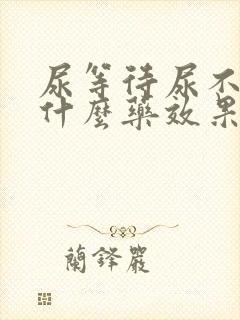 尿等待尿不
什麼藥效果
蘭鐸嚴